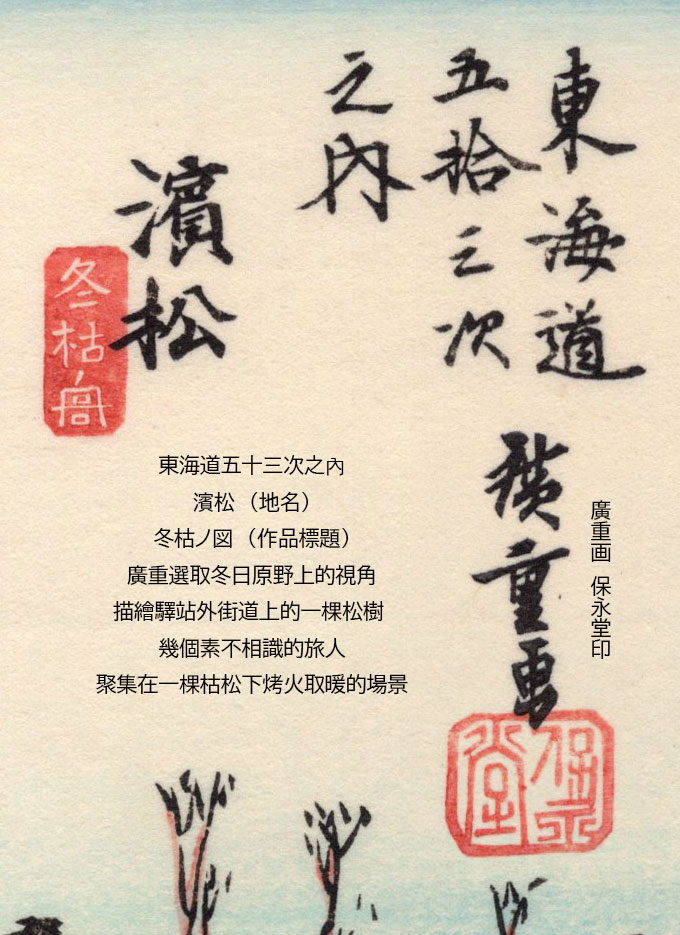 東海道
五拾三次
之內
濱松
冬枯ノ圖
廣重画
保永堂
東海道五十三次之內
濱松（地名）
冬枯ノ図（作品標題）
廣重選取冬日原野上的視角
描繪驛站外街道上的一棵松樹
幾個素不相識的旅人
聚集在一棵枯松下烤火取暖的場景
廣重画 保永堂印